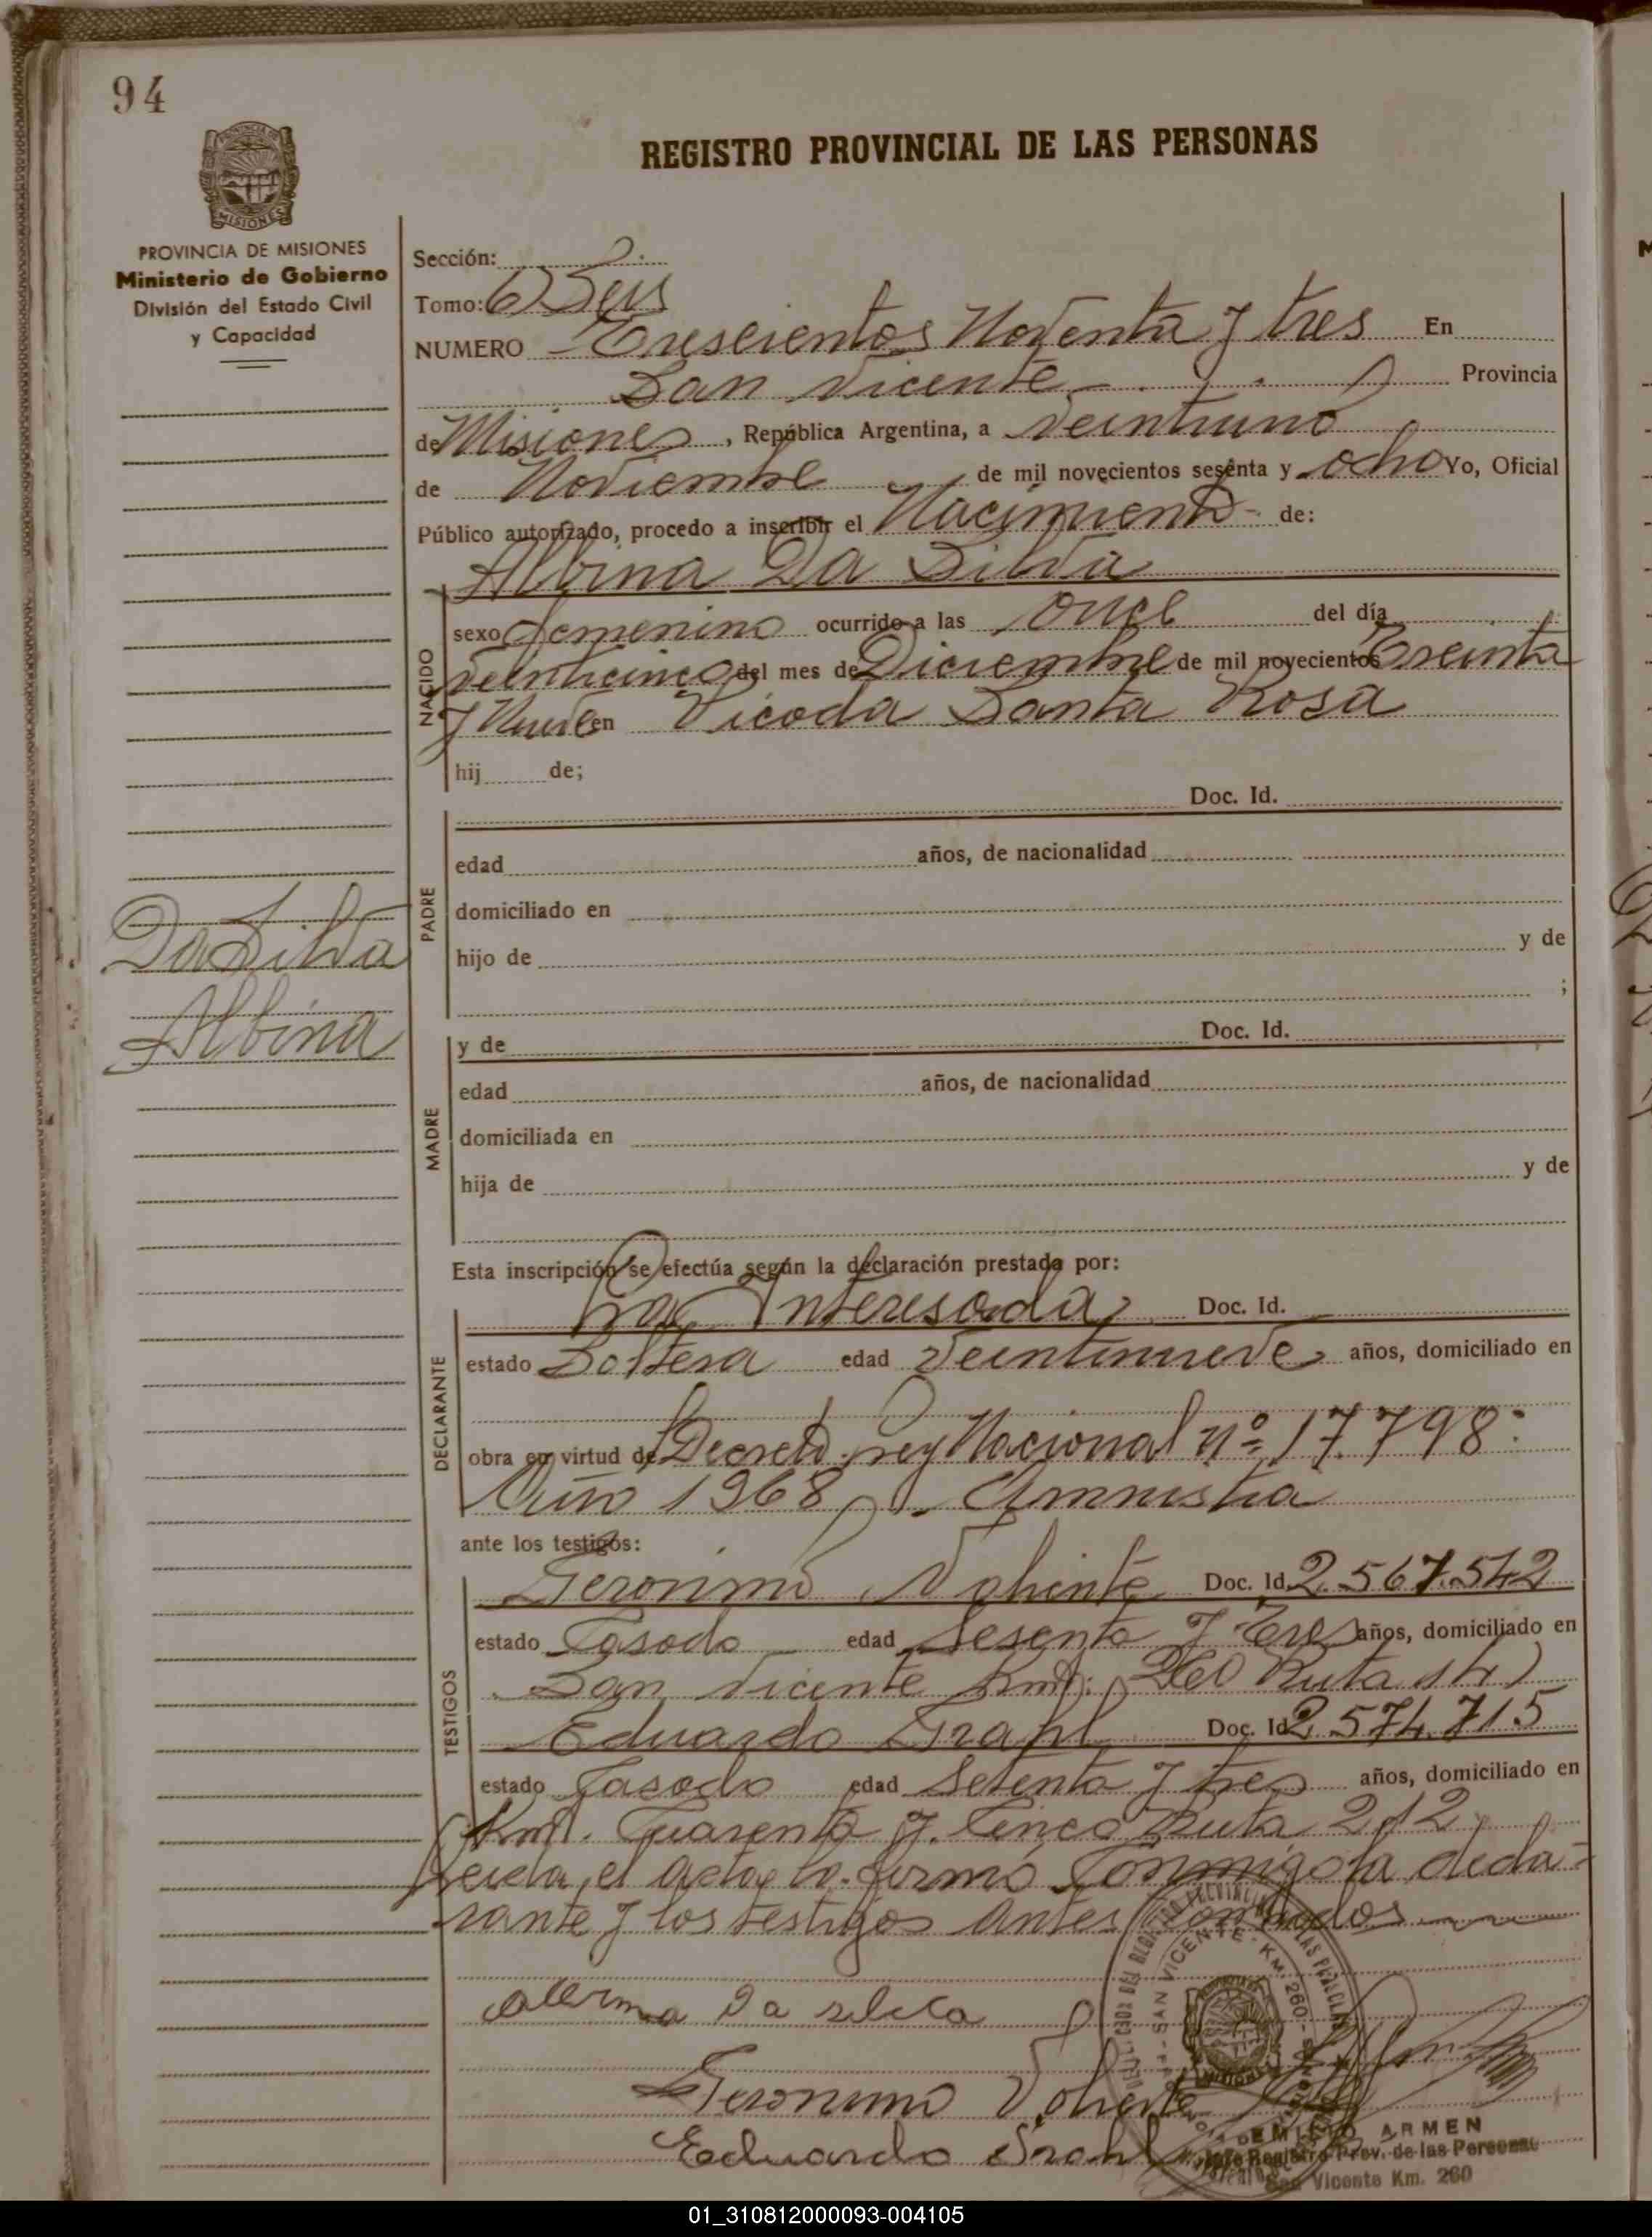 94
REGISTRO PROVINCIAL DE LAS PERSONAS
PROVINCIA DE
MISIONES
PROVINCIA DE MISIONES
Ministerio de Gobierno
División del Estado Civil
y Capacidad
Sección:
Tomo: 6) Seis
NUMERO Trescientos Noventa y tres En
San Vicente Provincia
de Misiones, República Argentina, a Veintiuno
de Noviembre de mil novecientos sesenta y ocho Yo, Oficial
Público autorizado, procedo a inscribir el Nacimiento de:
Albina Da Silva
NACIDO
sexo femenino ocurrido a las Once del día
veinticinco del mes de Diciembre de mil novecientos Treinta
y Nueve en Picada Santa Rosa
hij de;
PADRE
Doc. Id.
edad años, de nacionalidad
domiciliado en
hijo de y de
;
Da Silva
Albina
MADRE
y de Doc. Id.
edad años, de nacionalidad
domiciliada en
hija de y de
Esta inscripción se efectúa según la declaración prestada por:
DECLARANTE
La Interesada Doc. Id.
estado Soltera edad Veintinueve años, domiciliado en
obra en virtud de Decreto Ley Nacional nº 17.798:
Año 1968 Amnistia
ante los testigos:
TESTIGOS
Geronimo Doc. Id. 2.567.542
estado Casado edad Sesenta y Tres años, domiciliado en
San Vicente Km: 260 Ruta 14)
Eduardo Doc. Id 2.574.715
estado Casado edad Setenta y tres años, domiciliado en
Km. Cuarenta y Cinco Ruta 212
Leida el acta la firmó Conmigo la decla-
rante y los testigos antes nombrados
Albina Da silva
Geronimo
Eduardo
SAN VICENTE - KM. 260
MISIONES
ARMEN
Jefe Registro Prov. de las Personas
San Vicente Km. 260
01_310812000093-004105